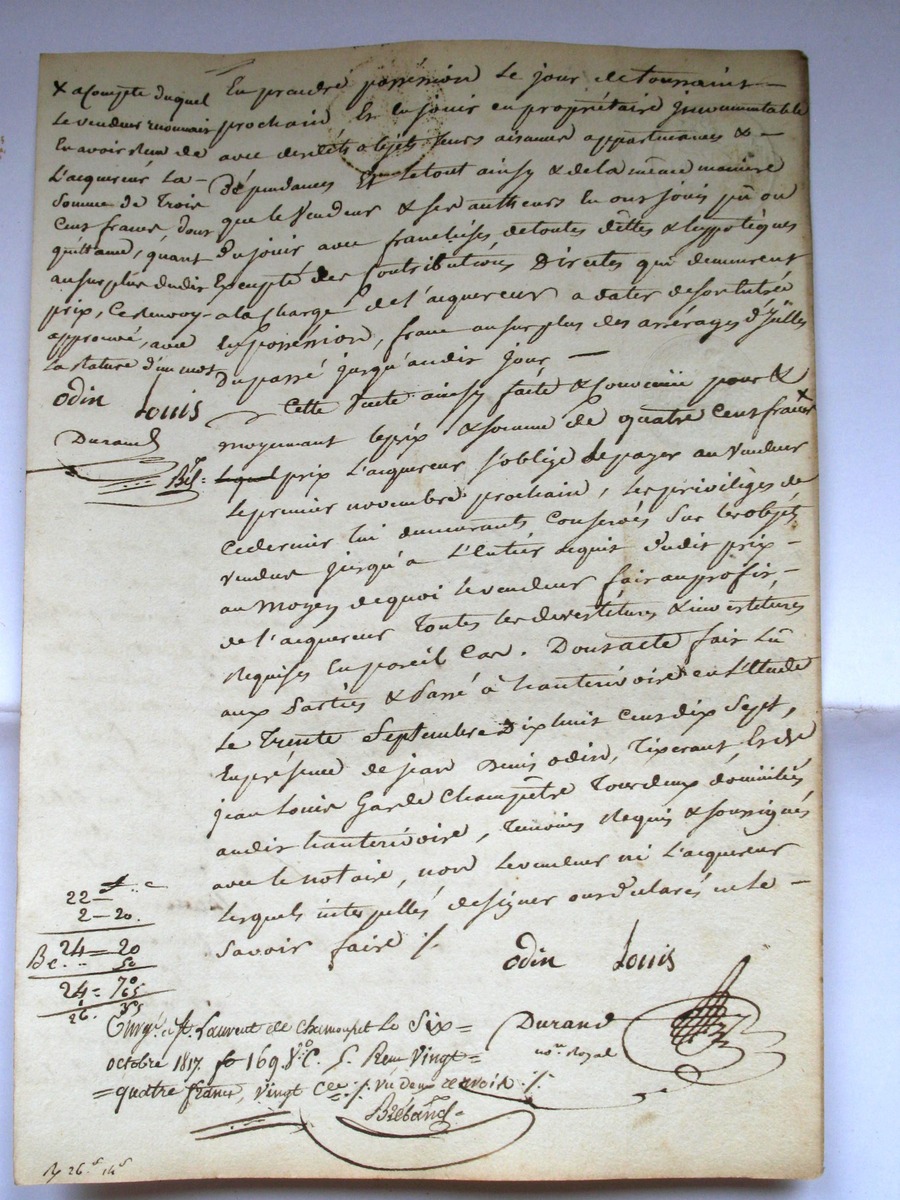 x a Compte duquel
le vendeur reconnait
En avoir Reçu de
L'acquereur La -
Somme de Trois
Cent francs, dont
quittance, quant
au surplus dudit
prix, Ce Renvoy -
approuvé, avec
La Rature d'un mot
odin Louis
Durand
Bel
En prendre possession Le jour de toussaint -
prochain Et En jouir en propriétaire Incommutable
avec desdits objets leurs aisances appartenances & -
dépendances Et Le tout ainsy & de la même maniere
que le Vendeur & ses autheurs En ont joui pû ou
du jouir avec franchises de toutes dettes & hyppotèques
Excepté des Contributions Directes qui demeurent
a la charge de l'acquereur a dater de son Entrée
En possession, franc au surplus des arrérages d'Icelles
Du passé jusqu'audit jour -
Cette Vente ainsy faite & Convenüe pour &
moyennant le prix & somme de quatre Cent francs x
Lequel prix L'acquereur s'oblige de payer au Vendeur
Le premier novembre prochain, Les privilèges de
Ce dernier lui demeurants Conservés Sur les objets
vendus jusqu'a L'Entier acquit dudit prix -
au moyen de quoi le vendeur fait au profit -
de l'acquereur Toutes les devestitures & investitures
Requises En pareil Cas. Dont acte fait Lû
aux Parties & Passé à hauterivoire en L'Etude
Le Trente Septembre Dix huit Cent dix Sept,
En présence de jean Denis odin, Tixerant, Et de
jean Louis Garde Champêtre Tous deux domiciliés
audit hauterivoire, Temoins Requis & soussignés
avec le notaire, non Le vendeur ni L'acquereur
Lesquels interpellés de signer ont déclarés ne le -
Savoir faire ./.
odin Louis
22 -
2 - 20.
24 = 20
50
24 = 70
Durand
nore Royal
Enregé. a St. Laurent de Chamousset Le Six =
octobre 1817 fo 169 Vo C. 5. Reçu Vingt =
= quatre francs, Vingt Ces ./.
Bréband
26 14